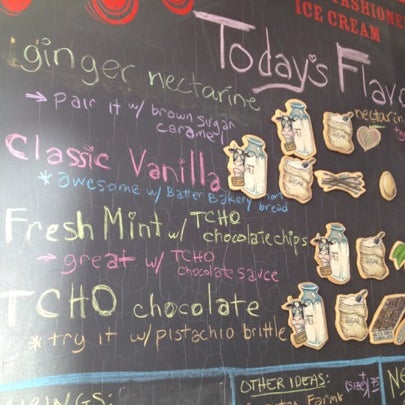 ICE CREAM
Today's
ginger nectarine
→ Pair it w/ brown sugar
caramel!
Classic Vanilla
* awesome w/ Batter Bakery
bread
Fresh Mint w/ TCHO
chocolate chips
→ great w/ TCHO
chocolate sauce
TCHO chocolate
* try it w/ pistachio brittle
OTHER IDEAS: